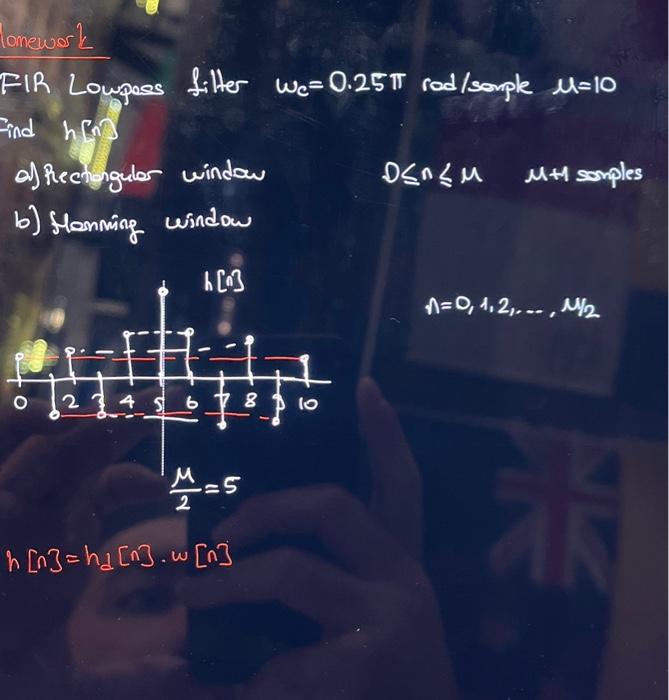 Homework
FIR Lowpass filter wc=0.25π rad/sample M=10
Find h[n]
a) Rectangular window 0≤n≤M M+1 samples
b) Hamming window
h[n]
n=0,1,2,...,M/2
0 2 3 4 5 6 7 8 9 10
M/2=5
h[n]=hd[n].w[n]